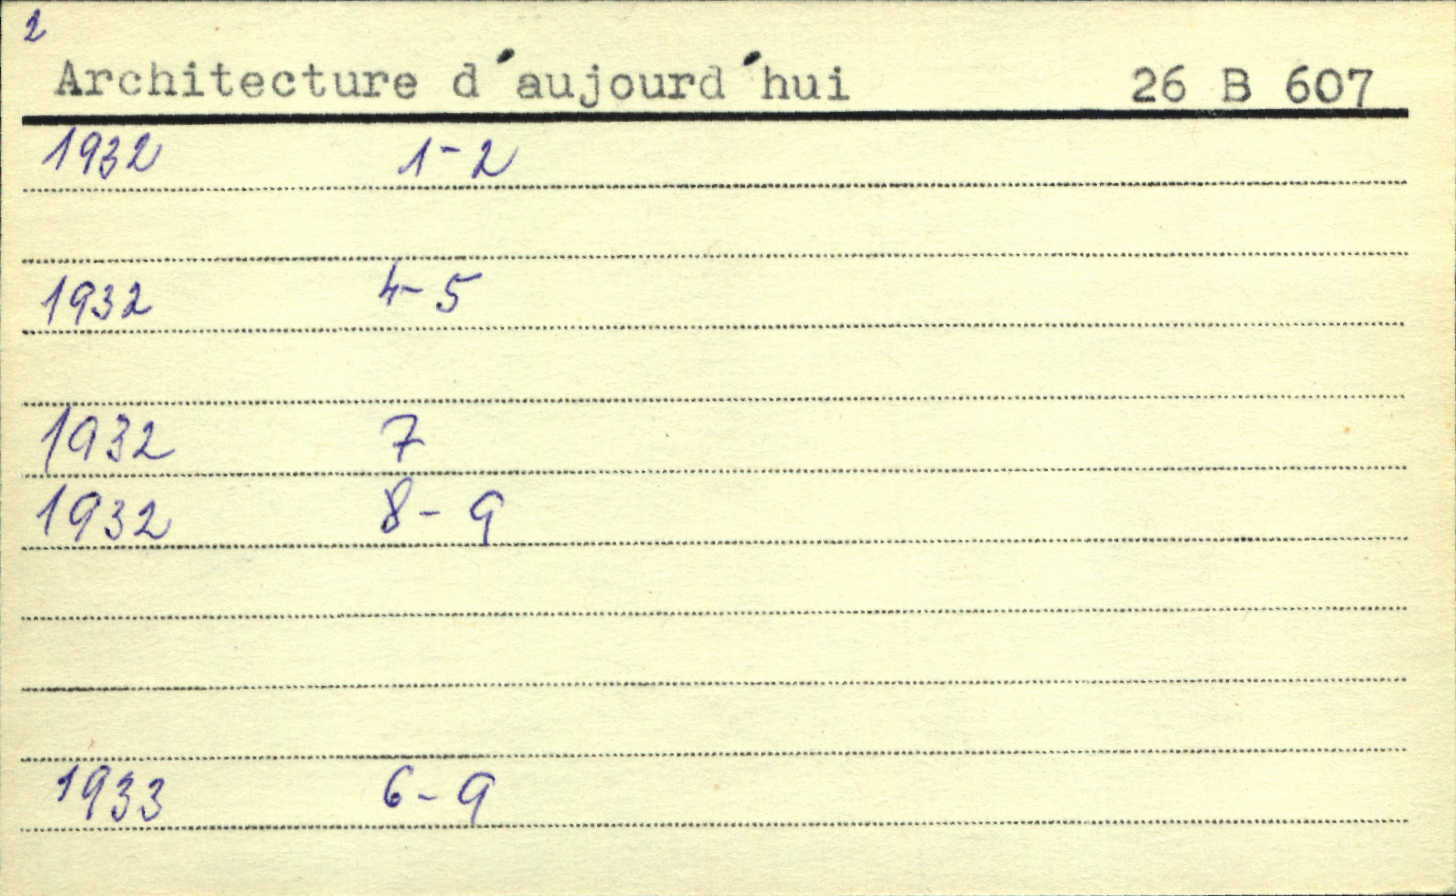 2
Architecture d´aujourd´hui 26 B 607
1932 1-2
1932 4-5
1932 7
1932 8-9
1933 6-9